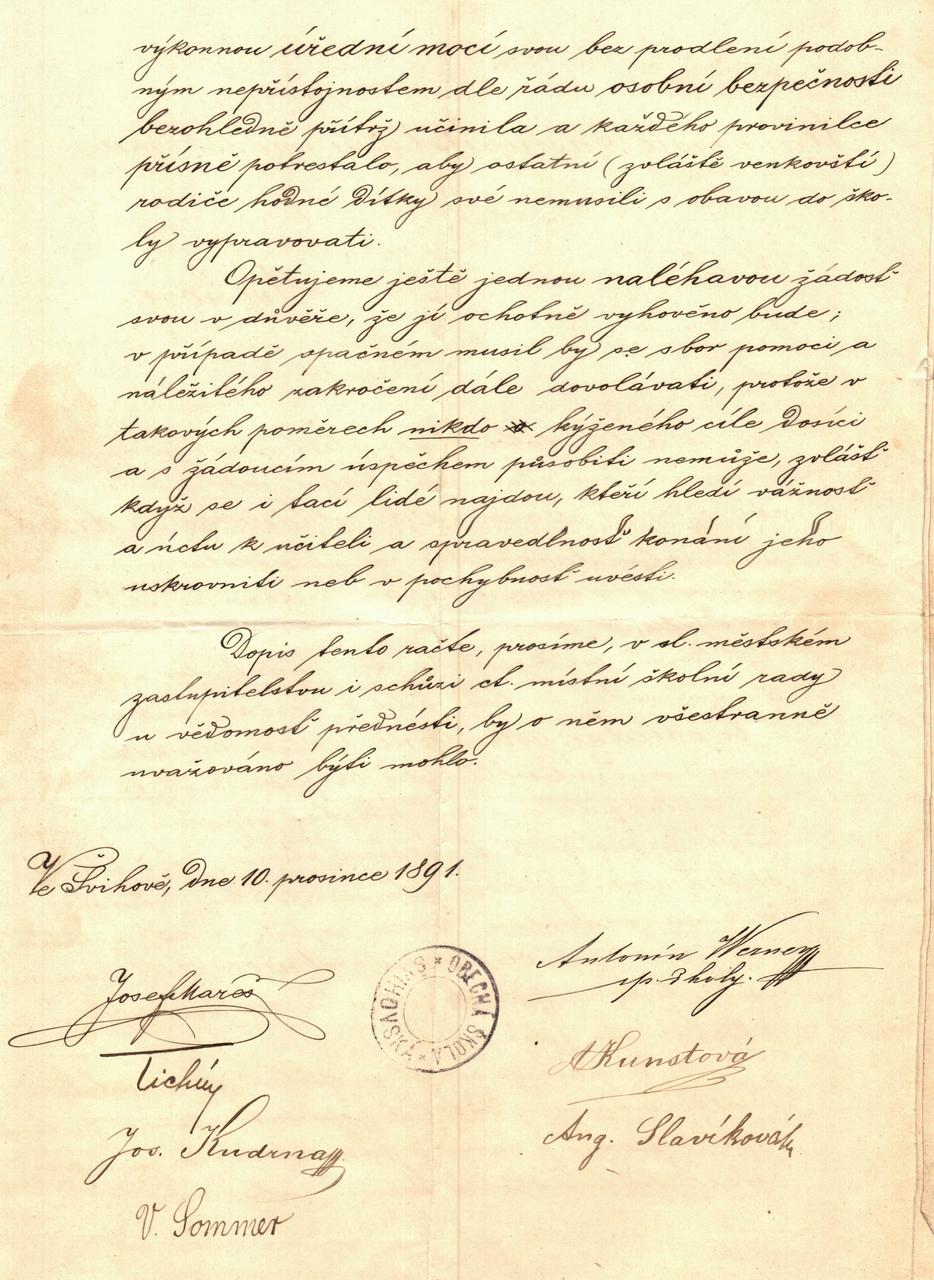 výkonnou úřední mocí svou bez prodlení podob-
ným nepřístojnostem dle řádu osobní bezpečnosti
bezohledně přítrž učinila a každého provinilce
přísně potrestalo, aby ostatní (zvláště venkovští)
rodiče hodné dítky své nemusili s obavou do ško-
ly vypravovati.
Opětujeme ještě jednou naléhavou žádosť
svou v důvěře, že jí ochotně vyhověno bude;
v případě opačném musil by se sbor pomoci a
náležitého zakročení dále dovolávati, protože v
takových poměrech nikdo kýženého cíle dosíci
a s žádoucím úspěchem působiti nemůže, zvlášť
když se i tací lidé najdou, kteří hledí vážnosť
a úctu k učiteli a spravedlnosť konání jeho
uskrovniti neb v pochybnosť uvésti.
Dopis tento račte, prosíme, v sl. městském
zastupitelstvu i schůzi ct. místní školní rady
u vědomosť přednésti, by o něm všestranně
uvažováno býti mohlo.
Ve Švihově, dne 10. prosince 1891.
Antonín Werner
Josef Mareš
OBECNÁ ŠKOLA
Tichý
AKunstová
Jos. Kudrna
Aug. Slavíková
V. Sommer